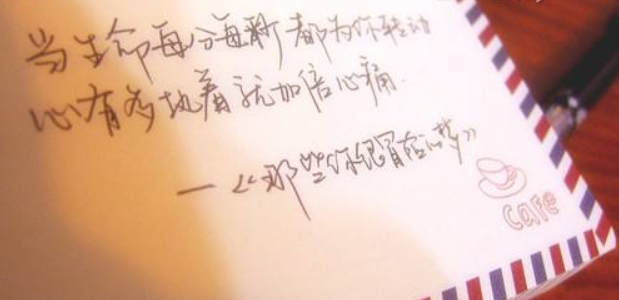 当生命每分每新都为你转动
心有多执着就加倍心痛.
—《那些你很冒险的梦》
cafe